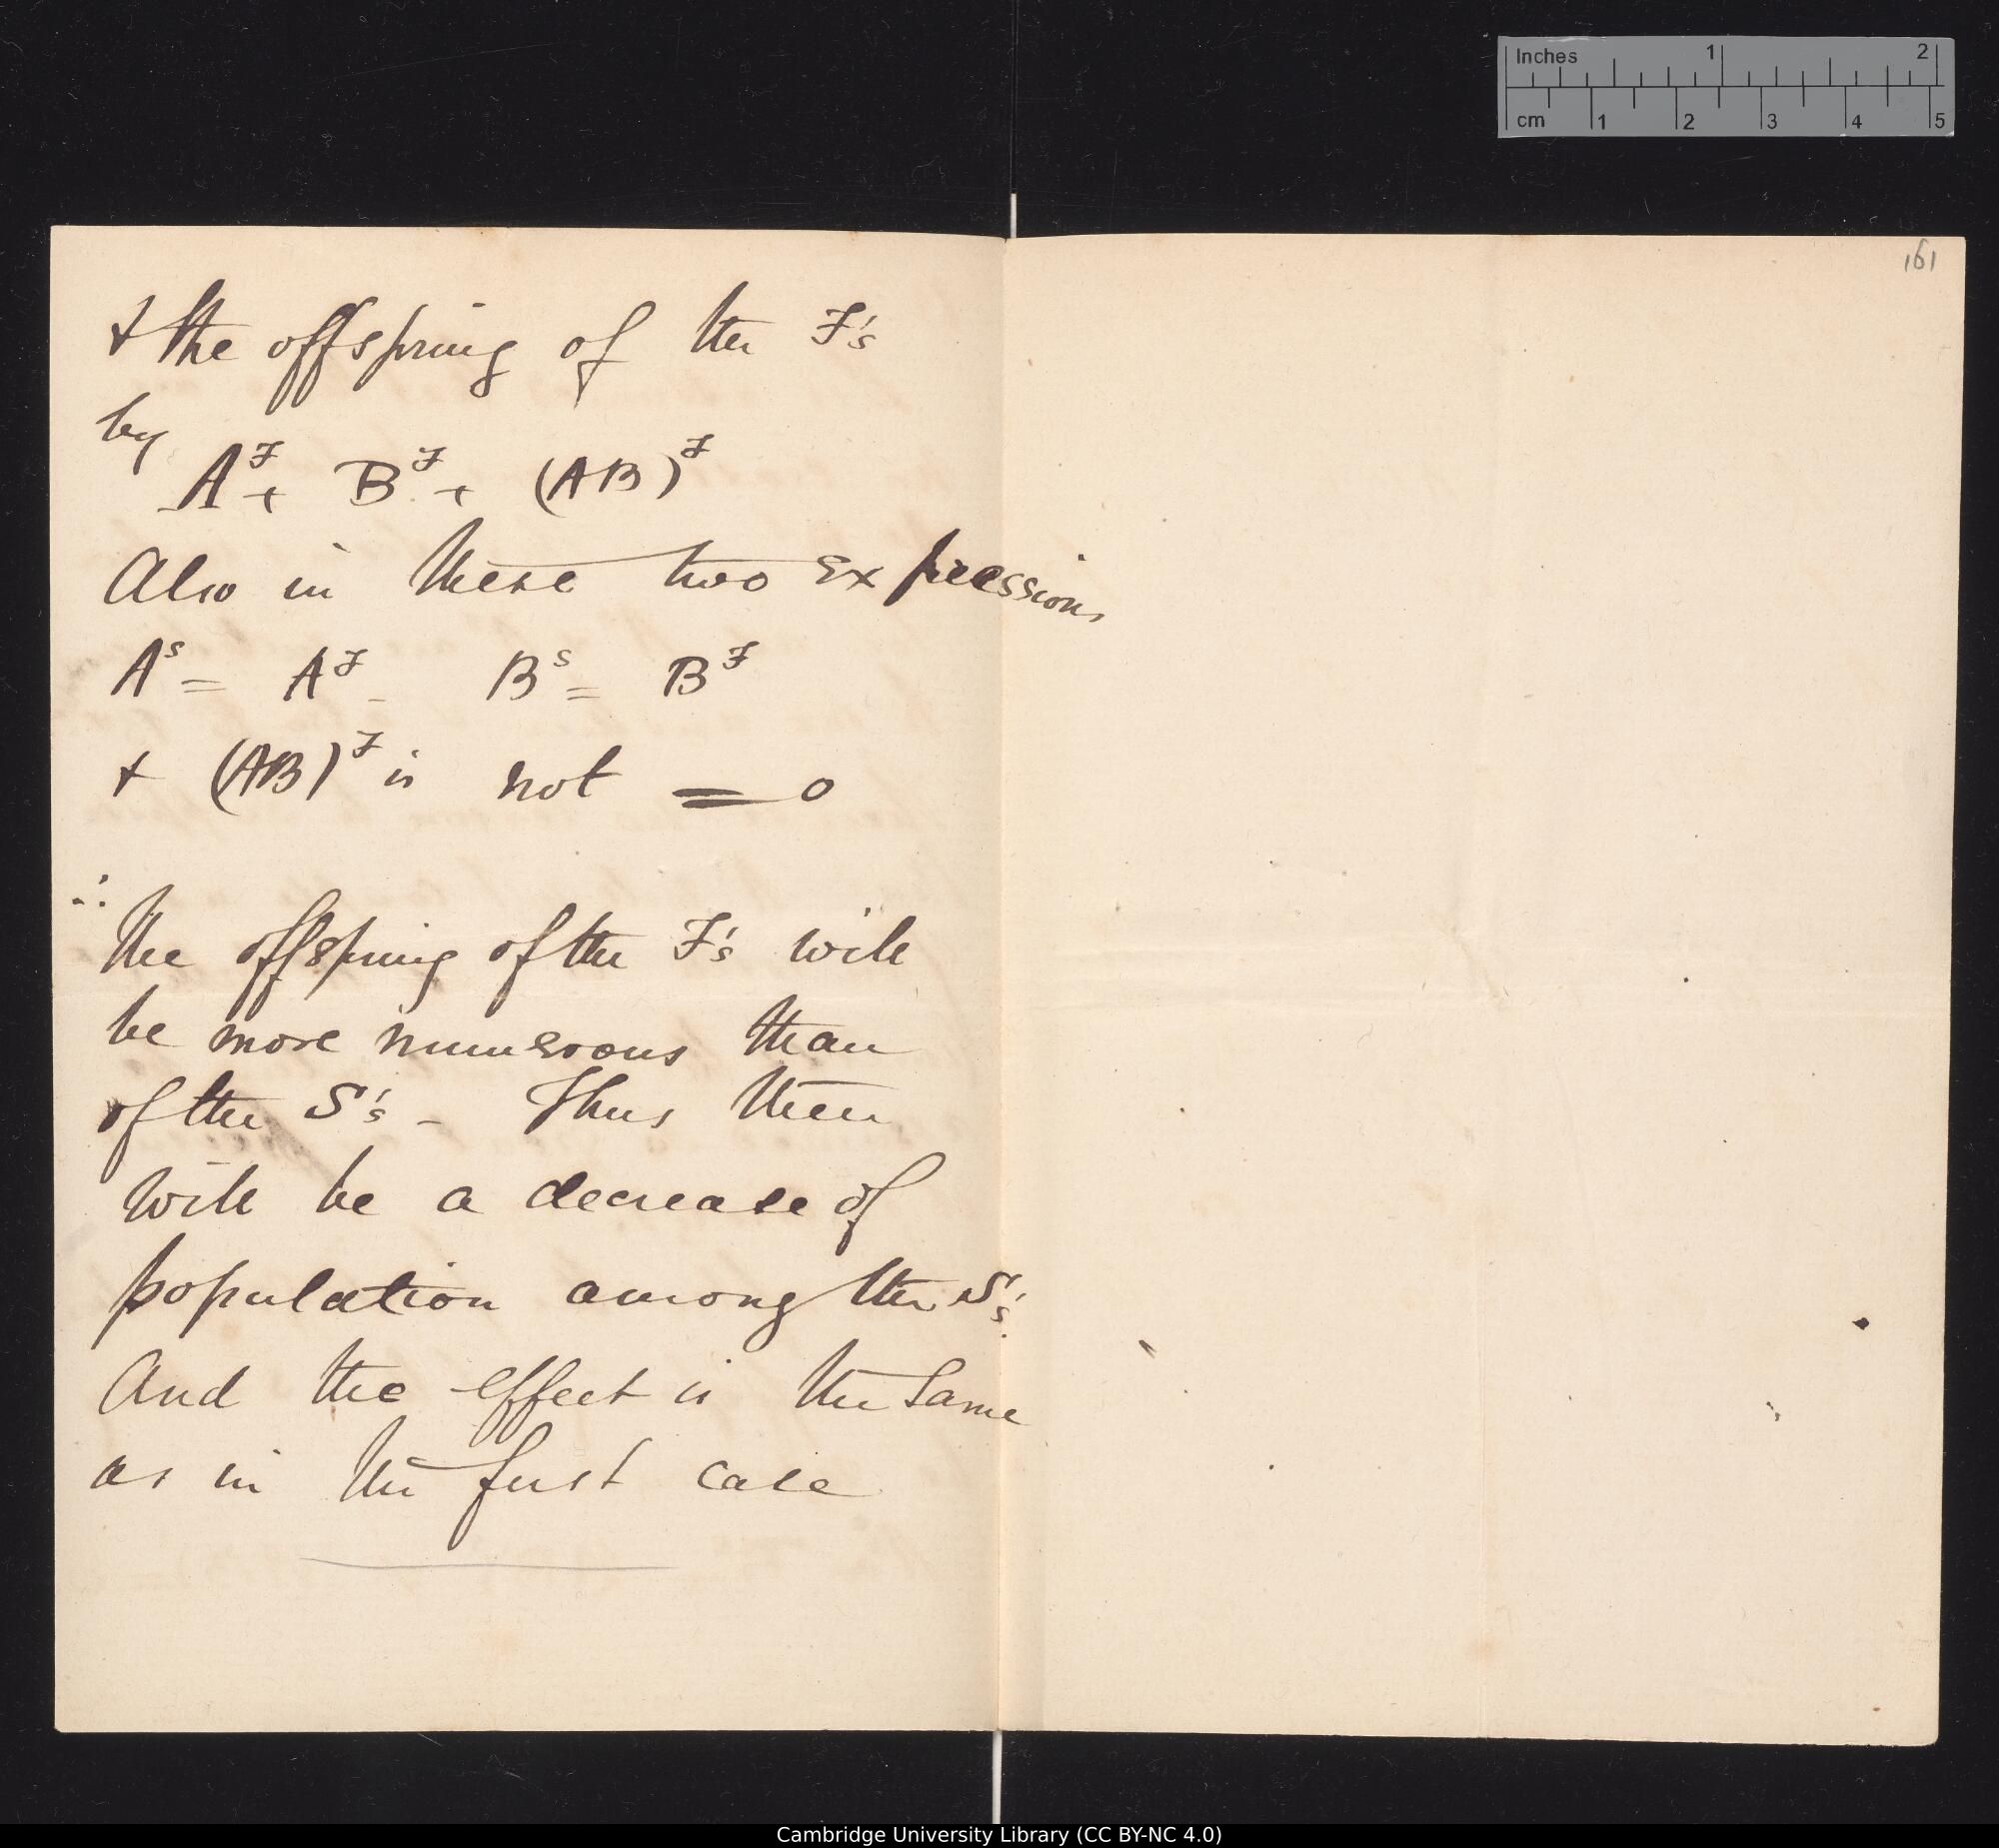 Inches 1 2
cm 1 2 3 4 5
161
& the offspring of the F's
by
A^F + B^F + (AB)^F
Also in these two expressions
A^s = A^F - B^s = B^F
& (AB)^F is not = 0
∴
the offspring of the F's will
be more numerous than
of the S's - Thus there
will be a decrease of
population among the S's.
And the effect is the same
as in the first case
Cambridge University Library (CC BY-NC 4.0)